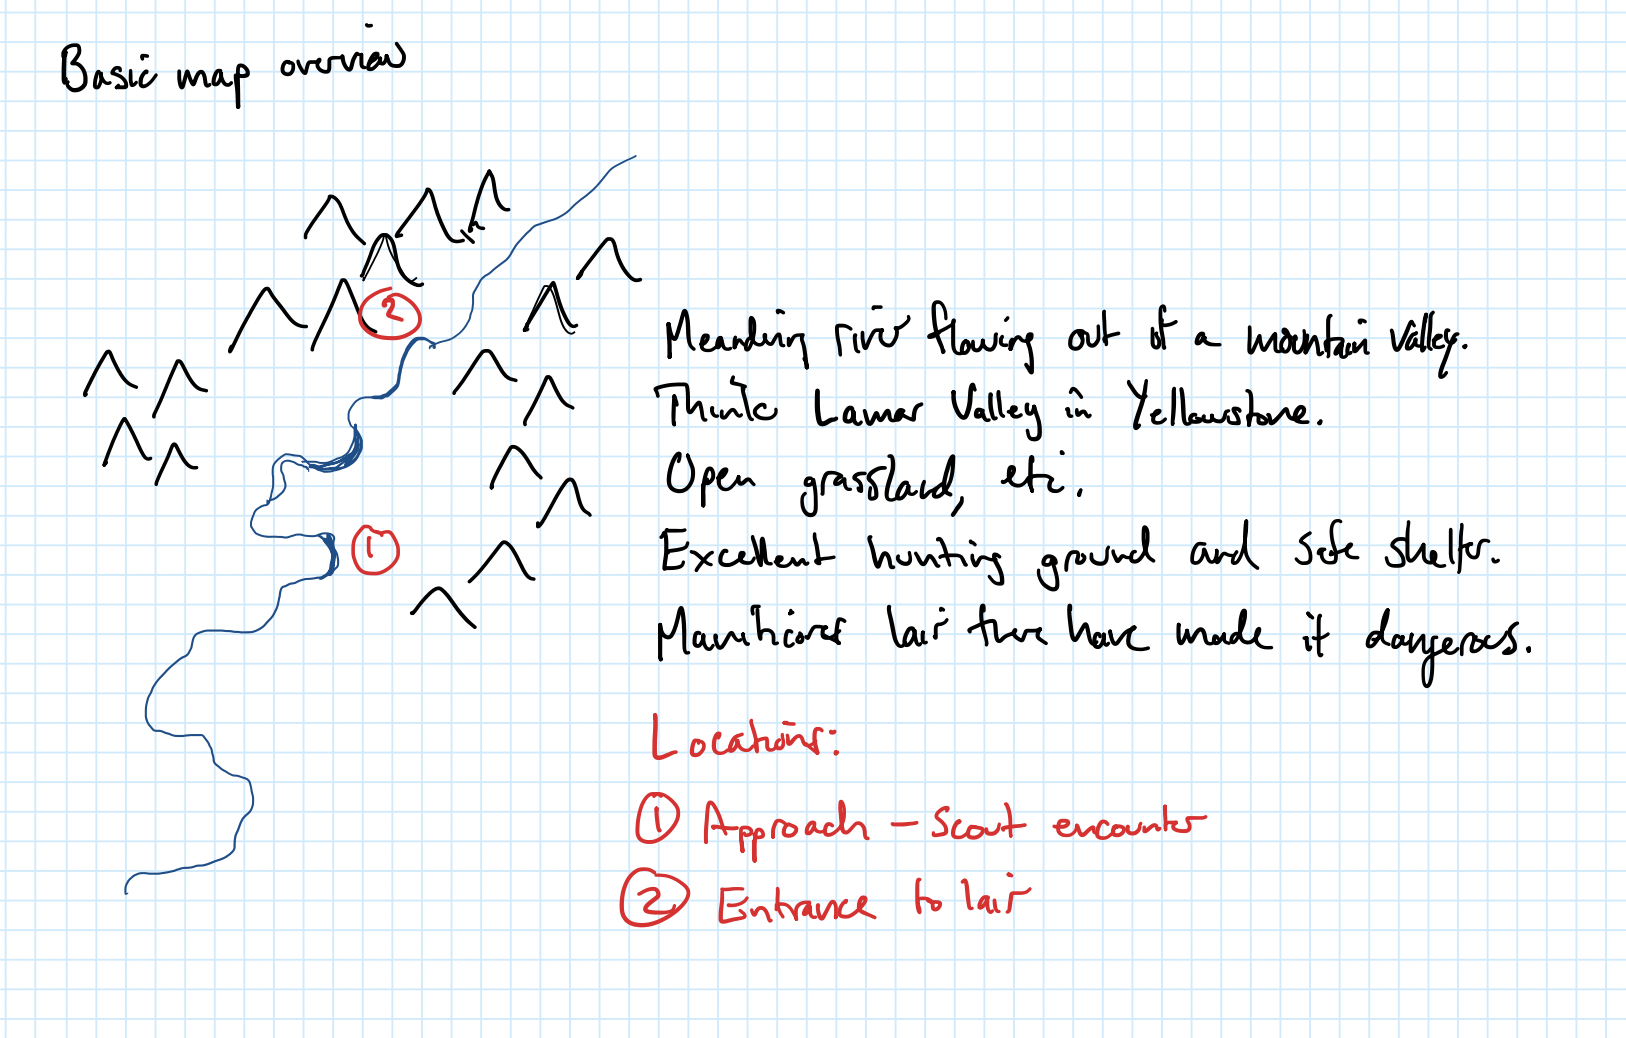 Basic map overview
2
Meandering river flowing out of a mountain valley.
Think Lamar Valley in Yellowstone.
Open grassland, etc.
1
Excellent hunting ground and safe shelter.
Manticores lair there have made it dangerous.
Locations:
1 Approach – Scout encounter
2 Entrance to lair